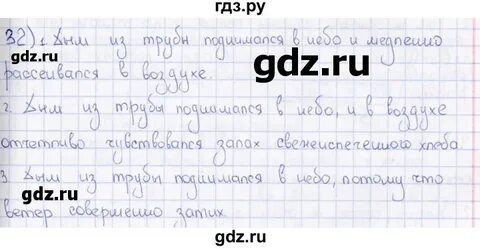 гдз.ру
32) 1. Дым из трубы поднимался в небо и медленно
рассеивался в воздухе.
гдз.ру
2. Дым из трубы поднимался в небо, и в воздухе
отчетливо чувствовался запах свежеиспеченного хлеба.
3. Дым из трубы поднимался в небо, потому что
ветер совершенно затих.
гдз.ру
гдз.ру